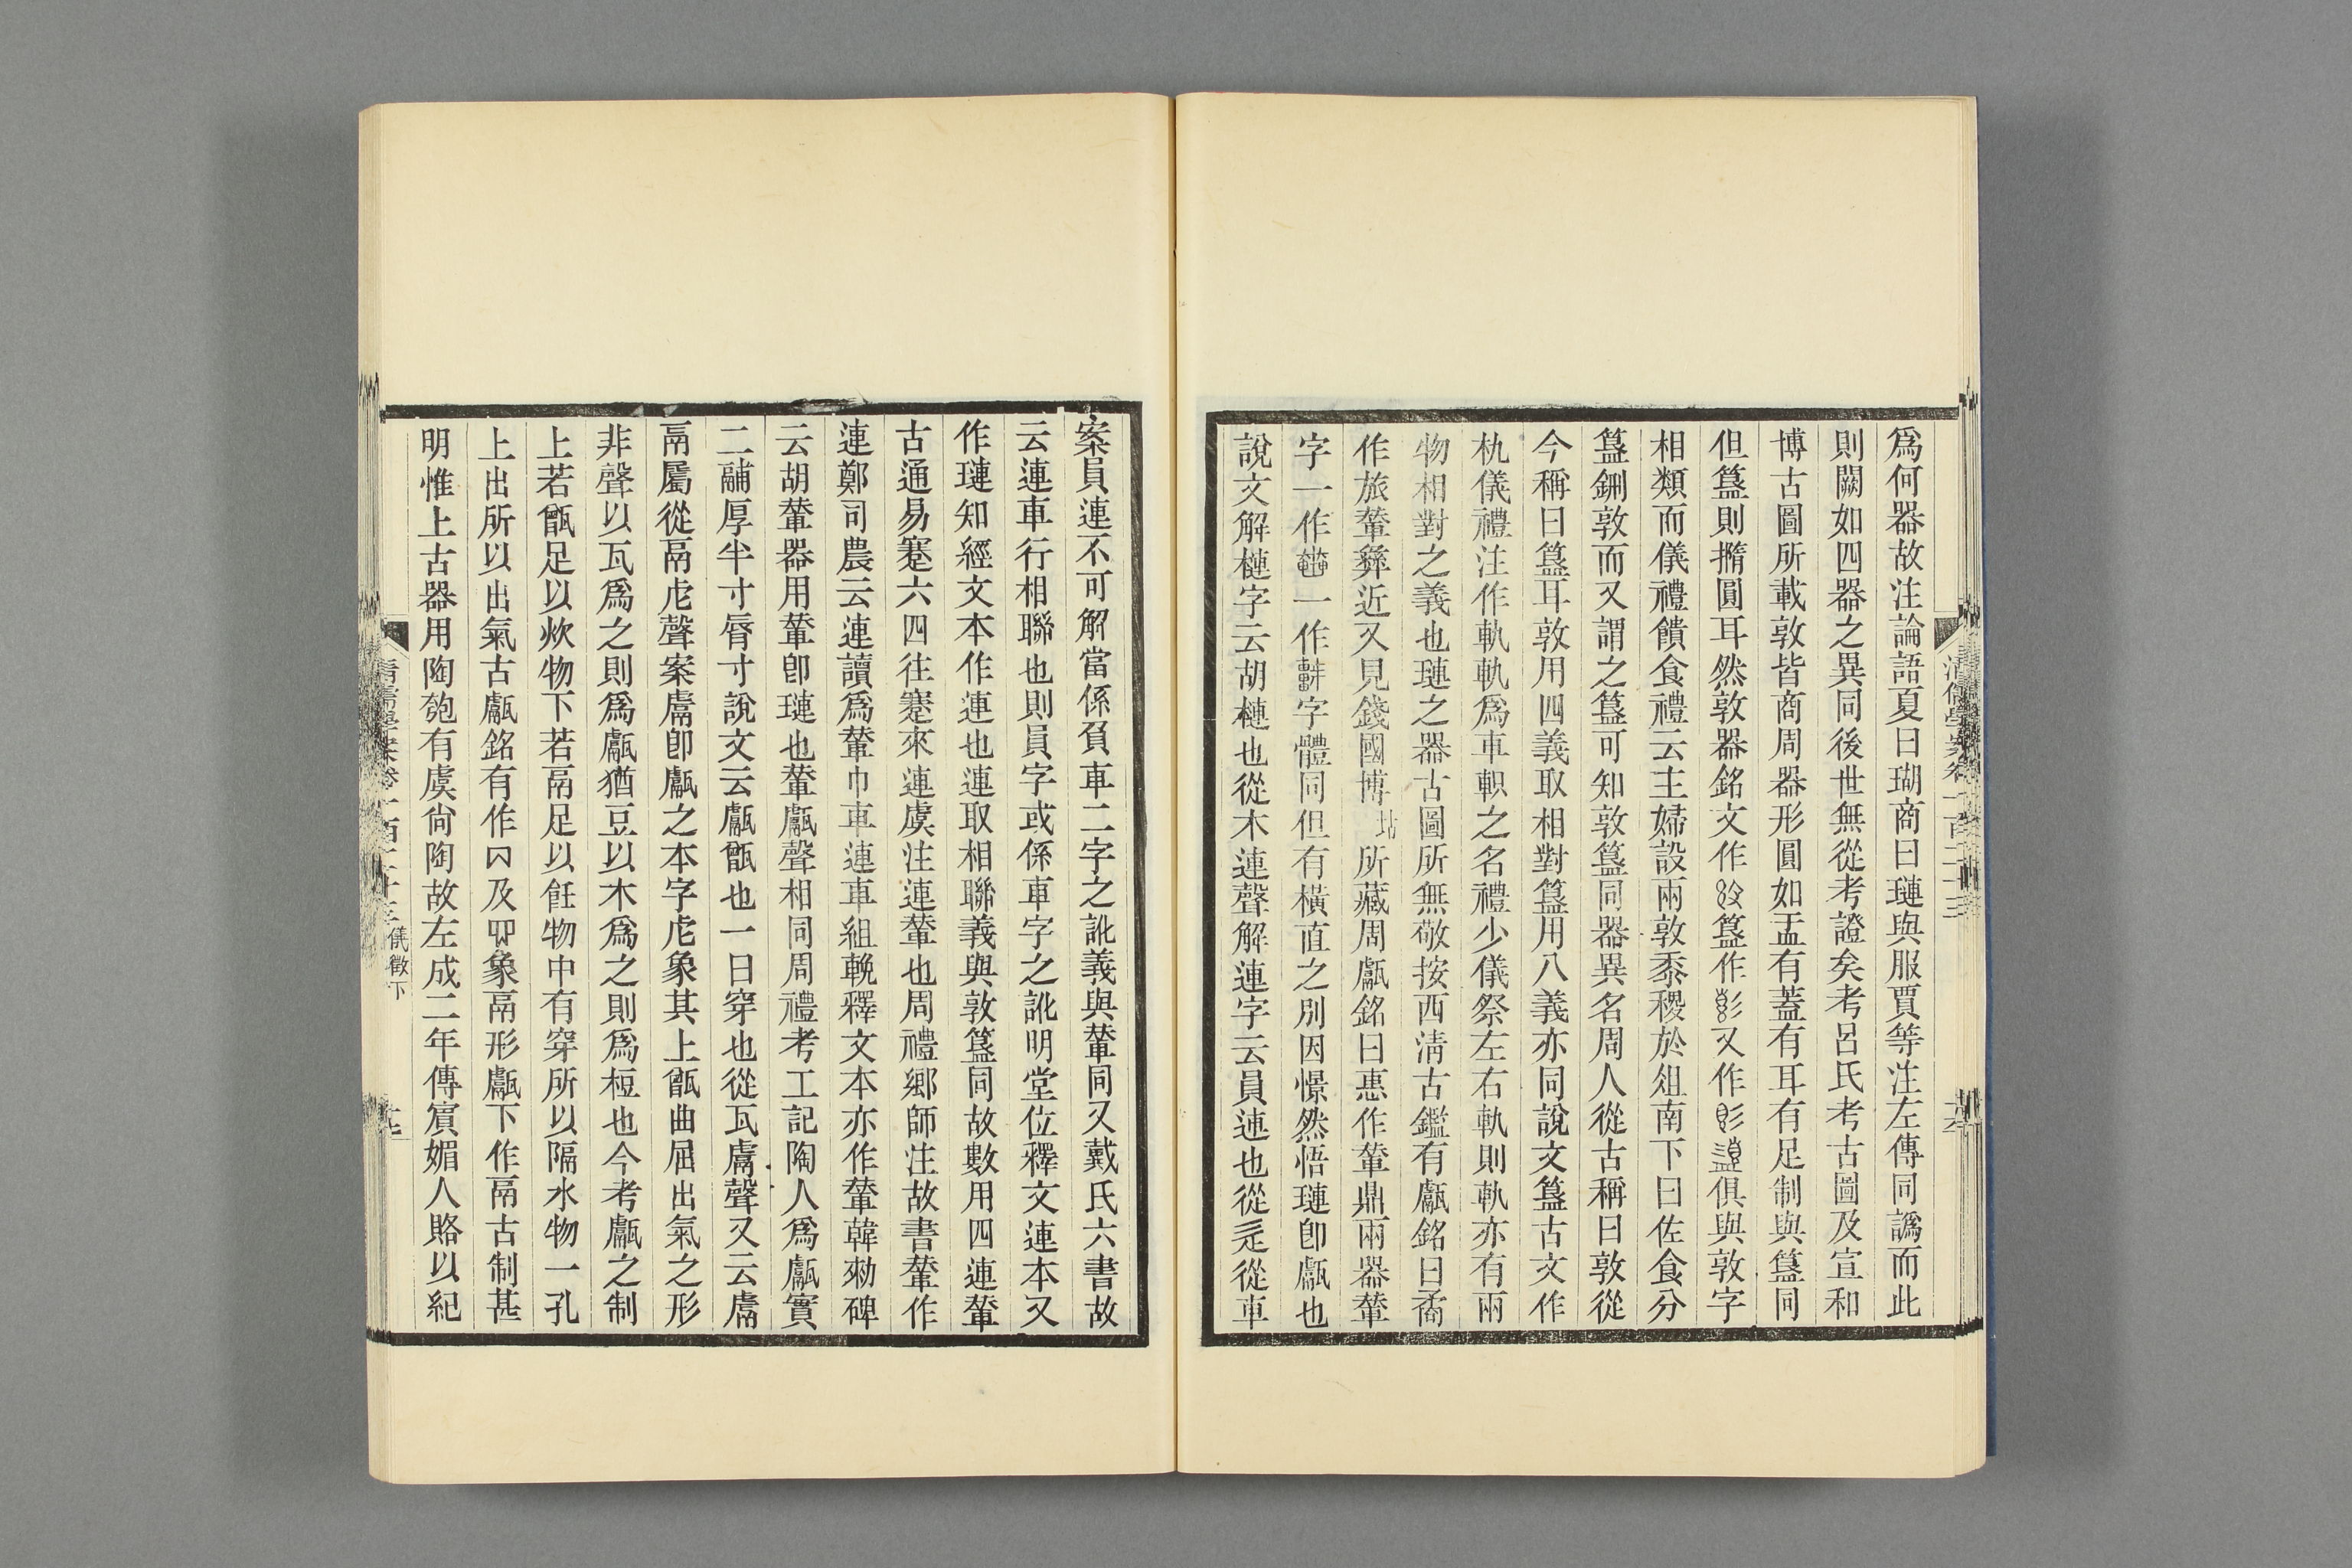 爲何器故注論語夏曰瑚商曰璉與服賈等注左傳同譌而此
則闕如四器之異同後世無從考證矣考呂氏考古圖及宣和
博古圖所載敦皆商周器形圓如盂有蓋有耳有足制與簋同
但簋則撱圓耳然敦器銘文作簋作又作俱與敦字
相類而儀禮饋食禮云主婦設兩敦黍稷於俎南下曰佐食分
簋鉶敦而又謂之簋可知敦簋同器異名周人從古稱曰敦從
今稱曰簋耳敦用四義取相對簋用八義亦同說文簋古文作
朹儀禮注作軌軌爲車軹之名禮少儀祭左右軌則軌亦有兩
物相對之義也璉之器古圖所無敬按西清古鑑有甗銘曰矞
作旅輦彝近又見錢國博坫所藏周甗銘曰惠作輦鼎兩器輦
字一作一作字體同但有橫直之別因憬然悟璉卽甗也
說文解槤字云胡槤也從木連聲解連字云員連也從辵從車
案員連不可解當係負車二字之訛義與輦同又戴氏六書故
云連車行相聯也則員字或係車字之訛明堂位釋文連本又
作璉知經文本作連也連取相聯義與敦簋同故數用四連輦
古通易蹇六四往蹇來連虞注連輦也周禮鄉師注故書輦作
連鄭司農云連讀爲輦巾車連車組輓釋文本亦作輦韓勑碑
云胡輦器用輦卽璉也輦甗聲相同周禮考工記陶人爲甗實
二鬴厚半寸脣寸說文云甗甑也一曰穿也從瓦鬳聲又云鬳
鬲屬從鬲虍聲案鬳卽甗之本字虍象其上甑曲屈出氣之形
非聲以瓦爲之則爲甗猶豆以木爲之則爲梪也今考甗之制
上若甑足以炊物下若鬲足以飪物中有穿所以隔水物一孔
上出所以出氣古甗銘有作及象鬲形甗下作鬲古制甚
明惟上古器用陶匏有虞尚陶故左成二年傳賓媚人賂以紀
清儒學案卷一百二十三 儀徵下